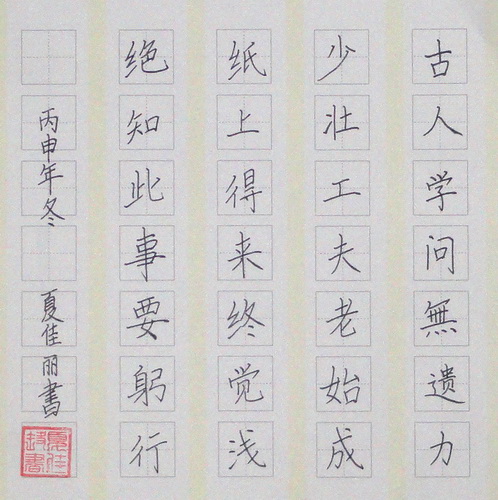 古人学问無遗力
少壮工夫老始成
纸上得来终觉浅
绝知此事要躬行
丙申年冬 夏佳丽書